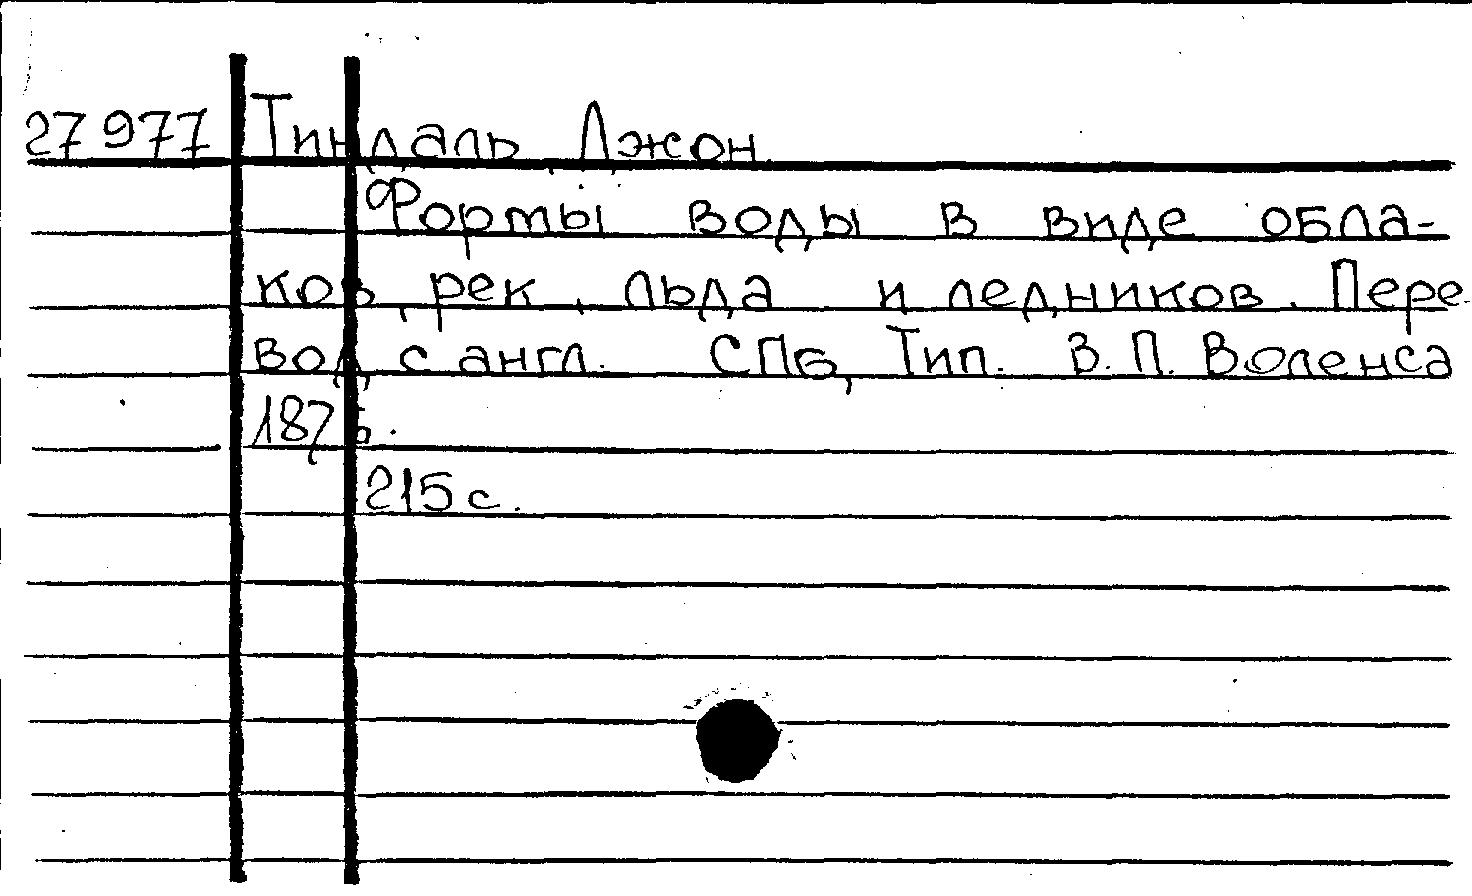 27977 Тиндаль Джон
Формы воды в виде обла-
ков, рек, льда и ледников. Пере
вод с англ. СПб, Тип. В.П. Воленса
1876.
215 с.